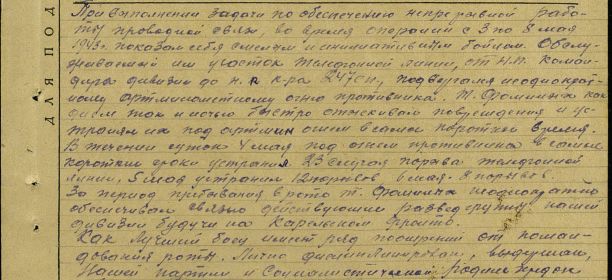 ДЛЯ ПОД
При выполнении задачи по обеспечению непрерывной рабо-
ты проводной связи, во время операции с 3 по 8 мая
1943г. показал себя смелым и инициативным бойцом. Обслу-
живаемый им участок телефонной линии, от Н.П. коман-
дира дивизии до н.п. к-ра 247сп, подвергался неоднократ-
ному артминометному огню противника. Т. Фомины как
днем так и ночью быстро отыскивал повреждения и уст-
ранял их под артмин огнем в самое короткое время.
В течении суток 4 мая под огнем противника в самые
короткие сроки устранил 23 случая порыва телефонной
линии. 5 мая устранил 12 порывов 6 мая. 8 порывов.
За период пребывания в роте т. неоднократно
обеспечивал связью действующую разведгруппу нашей
дивизии будучи на Карельском фронте.
Как лучший боец имеет ряд поощрений от коман-
дования роты. Лично дисциплинирован, выдержан,
Нашей партии и Социалистической родине предан